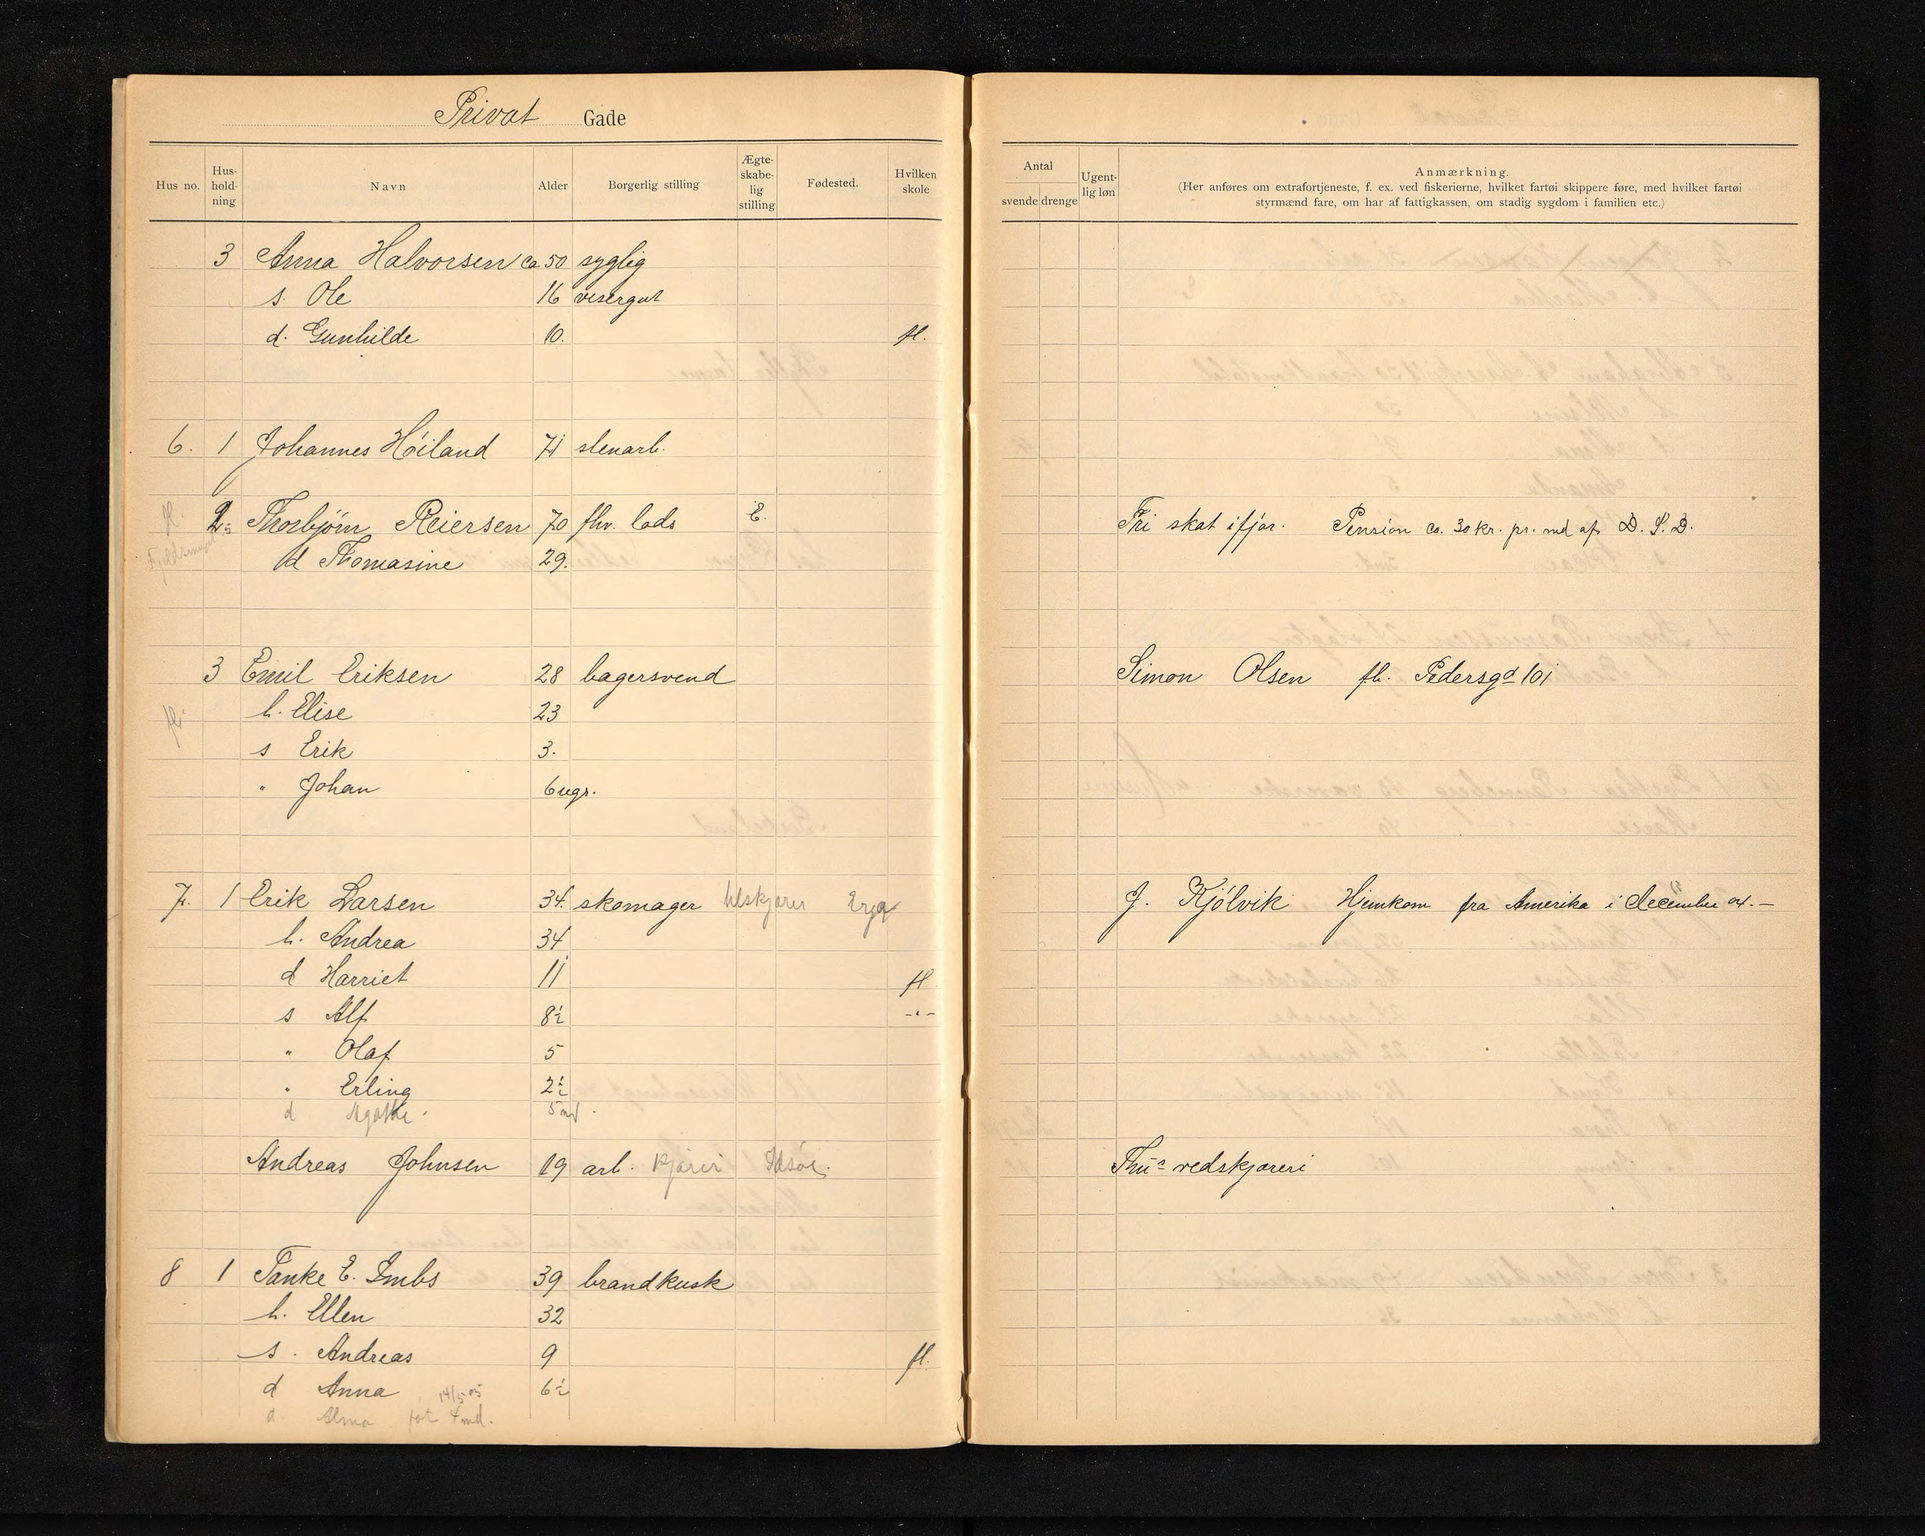 Privat Gade
Hus no. Hus-hold-ning Navn Alder Borgerlig stilling Ægte-skabe-lig stilling Fødested. Hvilken skole
Antal svende drenge Ugent-lig løn Anmærkning.
(Her anføres om extrafortjeneste, f. ex. ved fiskerierne, hvilket fartøi skippere føre, med hvilket fartøi
styrmænd fare, om har af fattigkassen, om stadig sygdom i familien etc.)
3 Anna Halvorsen ca 50 syglig
s. Ole 16 visergut
d. Gunhilde 10. fl.
6. 1 Johannes Høiland 71 stenarb.
fl. 2 Thorbjörn Reiersen 70 fhv. lods E. Fri skat ifjor. Pension ca. 30 kr. pr. md af D. S. D.
d Thomasine 29.
3 Emil Eriksen 28 bagersvend Simon Olsen fh. Pedersgd 101
fl. h. Elise 23
s Erik 3.
" Johan 6 ugr.
7. 1 Erik Larsen 34. skomager J. Kjölvik Hjemkom fra Amerika i december 04.—
h. Andrea 34
d Harriet 11 fl
s Alf 8½ -"-
" Olaf 5
" Erling 2½
d Agathe. 5 md.
Andreas Johnsen 19 arb. kjører Idsöe. Thus vedskjæreri
8 1 Tanke E. Imbs 39 brandkusk
h. Ellen 32
s. Andreas 9 fl.
d Anna 6½
14/5 05
d. Alma 4 md.